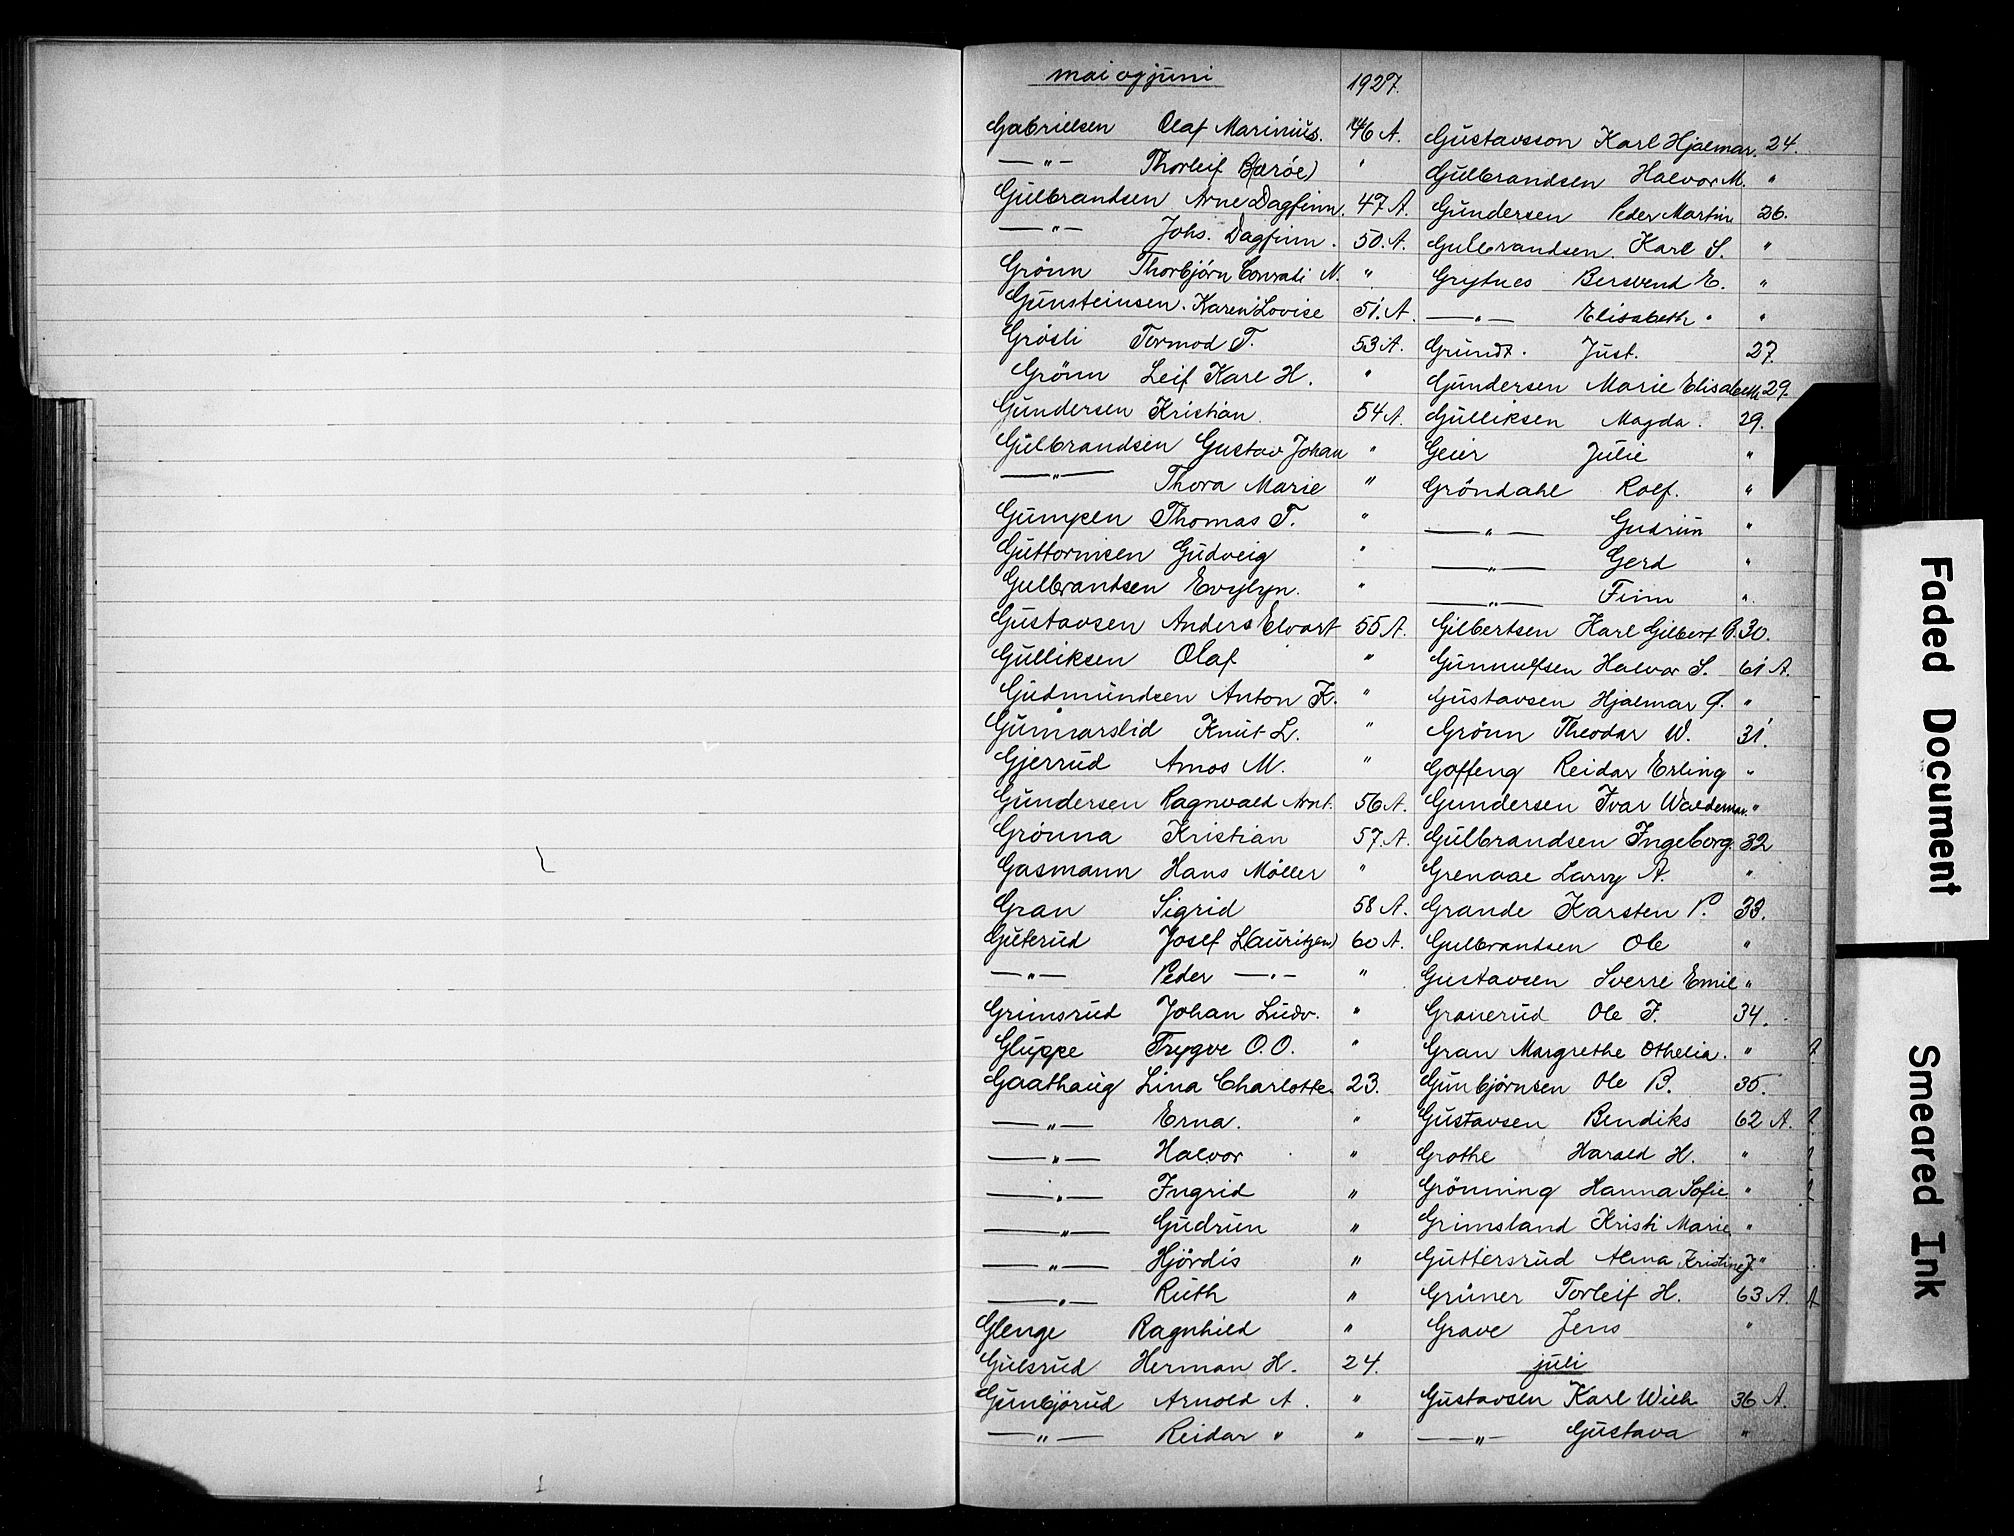 mai og juni 1927.
Gabrielsen Olaf Marinius. 46 A.
—"— Thorleif B(ærøe) "
Gulbrandsen Arne Dagfinn. 47 A.
—"— Johs. Dagfinn. 50. A.
Grönn Thorbjörn Conradi N. "
Gunsteinsen. Karen Lovise 51. A.
Grösli Tormod T. 53 A.
Grönn Leif Karl H. "
Gundersen Kristian 54 A
Gulbrandsen Gustav Johan "
—"— Thora Marie "
Gumpen Thomas T. "
Guttormsen Gudveig "
Gulbrandsen Evylyn. "
Gustavsen Anders Edvart 55 A.
Gulliksen Olaf "
Gudmundsen Anton K. "
Gunnarslid Knut L. "
Gjerrud Amos M. "
Gundersen Ragnvald Arnt. 56 A.
Grönna Kristian 57 A.
Gasmann Hans Möller "
Gran Sigrid 58 A.
Guterud Josef L(auritzen) 60 A.
—"— Peder —"— "
Grimsrud Johan Ludv. "
Gluppe Trygve O.O. "
Gaathaug Lina Charlotte. 23.
—"— Erna. "
—"— Halvor "
—"— Ingrid "
—"— Gudrun "
—"— Hjördis "
—"— Ruth "
Glenge Ragnhild "
Gulsrud Herman H. 24.
Gunbjörud Arnold A. "
—"— Reidar " "
Gustavsson Karl Hjalmar. 24.
Gulbrandsen Halvor M. "
Gundersen Peder Martin 26.
Gulbrandsen. Karl S. "
Grytnes Bersvend E. "
—"— Elisabeth " "
Grundt. Just. 27.
Gundersen Marie Elisabeth 29.
Gulliksen Magda. 29.
Geier Julie "
Gröndahl Rolf. "
—"— Gudrun "
—"— Gerd "
—"— Finn "
Gilbertsen Karl Gilbert B. 30.
Gunnulfsen Halvor S. 61 A.
Gustavsen Hjalmar Ø. "
Grönn Theodor W. 31.
Goffeng Reidar Erling "
Gundersen Ivar Waldemar. "
Gulbrandsen Ingeborg. 32
Grenaae Larry A. "
Grande Karsten P. 33.
Gulbrandsen Ole "
Gustavsen Sverre Emil "
Granerud Ole F. 34.
Gran Margrethe Othelia. "
Gunbjørnsen Ole B. 35.
Gustavsen Bendiks 62 A.
Grothe Harald H. "
Grönning Hanna Sofie "
Grimsland Kristi Marie "
Guttersrud Alma Kristine J. "
Grüner Torleif H. 63 A.
Grave Jens "
juli
Gustavsen Karl Wilh 36 A.
—"— Gustava "
Faded Document
Smeared Ink